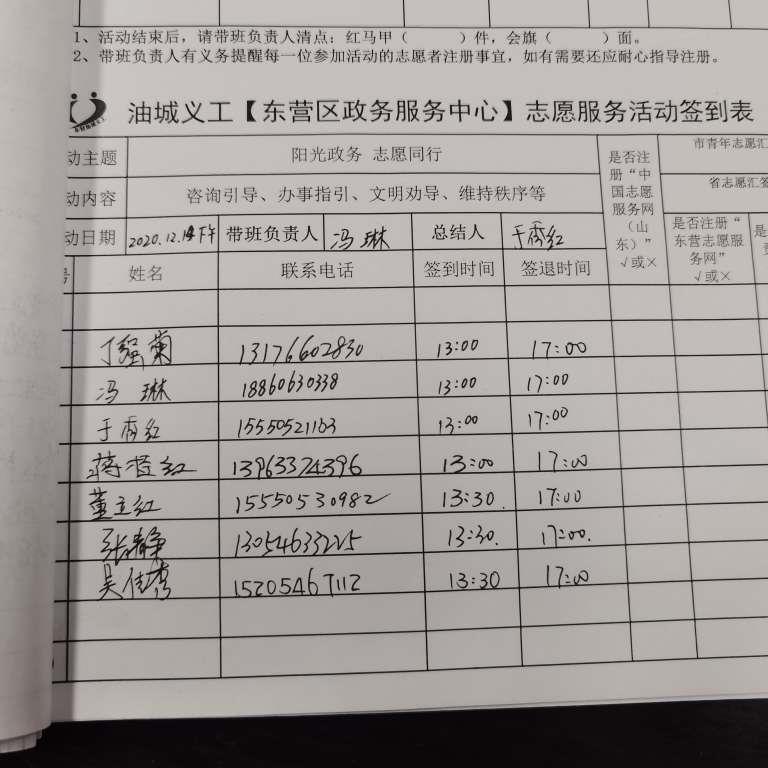 1、活动结束后，请带班负责人清点：红马甲（ ）件，会旗（ ）面。
2、带班负责人有义务提醒每一位参加活动的志愿者注册事宜，如有需要还应耐心指导注册。
油城义工【东营区政务服务中心】志愿服务活动签到表
动主题 阳光政务 志愿同行 是否注册“中国志愿服务网（山东）”√或× 市青年志愿汇
动内容 咨询引导、办事指引、文明劝导、维持秩序等 省志愿汇签
动日期 2020.12.14下午 带班负责人 冯琳 总结人 于秀红 是否注册“东营志愿服务网”√或×
姓名 联系电话 签到时间 签退时间
丁强菊 13176602830 13:00 17:00
冯琳 18860630338 13:00 17:00
于秀红 15550521163 13:00 17:00
13963374396 13:00 17:00
董立红 15550530982 13:30 17:00
张静 13054633225 13:30. 17:00.
吴佳秀 15205467112 13:30 17:00